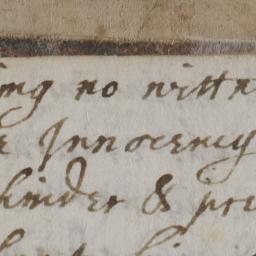 ing no wittn
e Innocency
hinder & pre